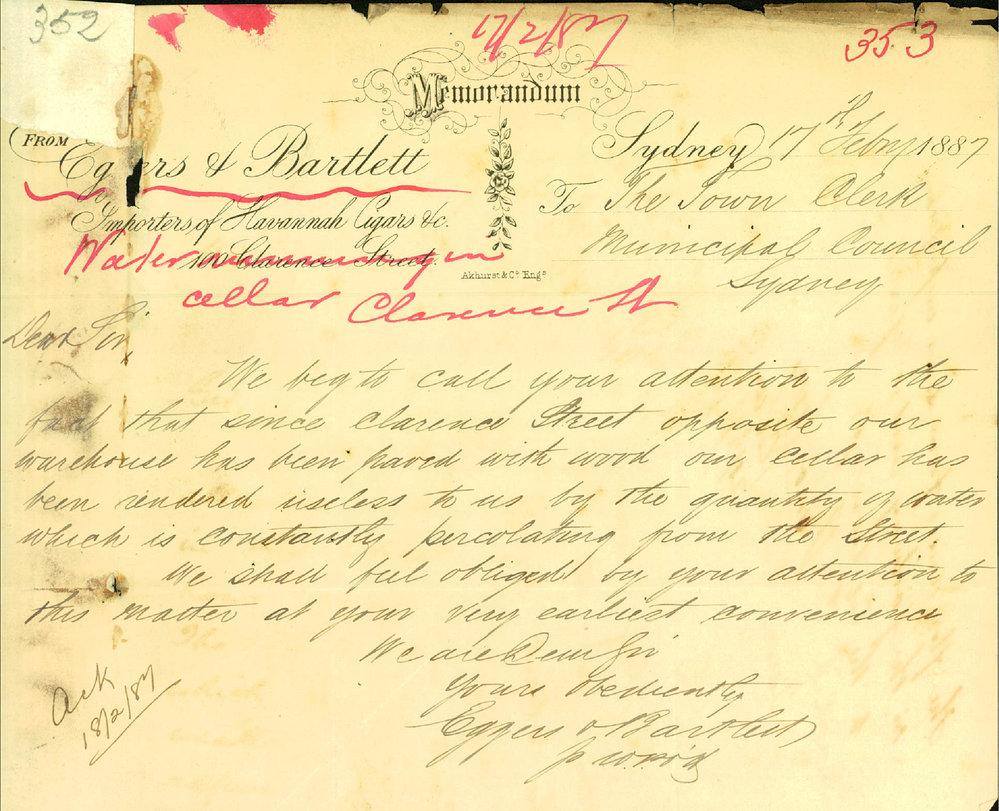 352
17/2/87
353
Memorandum
FROM
Eggers & Bartlett
Importers of Havannah Cigars &c.
100 Clarence Street.
Akhurst & Co Engs
Sydney 17th Febry 1887
To The Town Clerk
Municipal Council
Sydney
Water in
cellar Clarence St
Dear Sir
We beg to call your attention to the
fact that since Clarence Street opposite our
warehouse has been paved with wood our cellar has
been rendered useless to us by the quantity of water
which is constantly percolating from the Street.
We shall feel obliged by your attention to
this matter at your very earliest convenience
We are Dear Sir
Yours obediently
Eggers & Bartlett
Ack
18/2/87